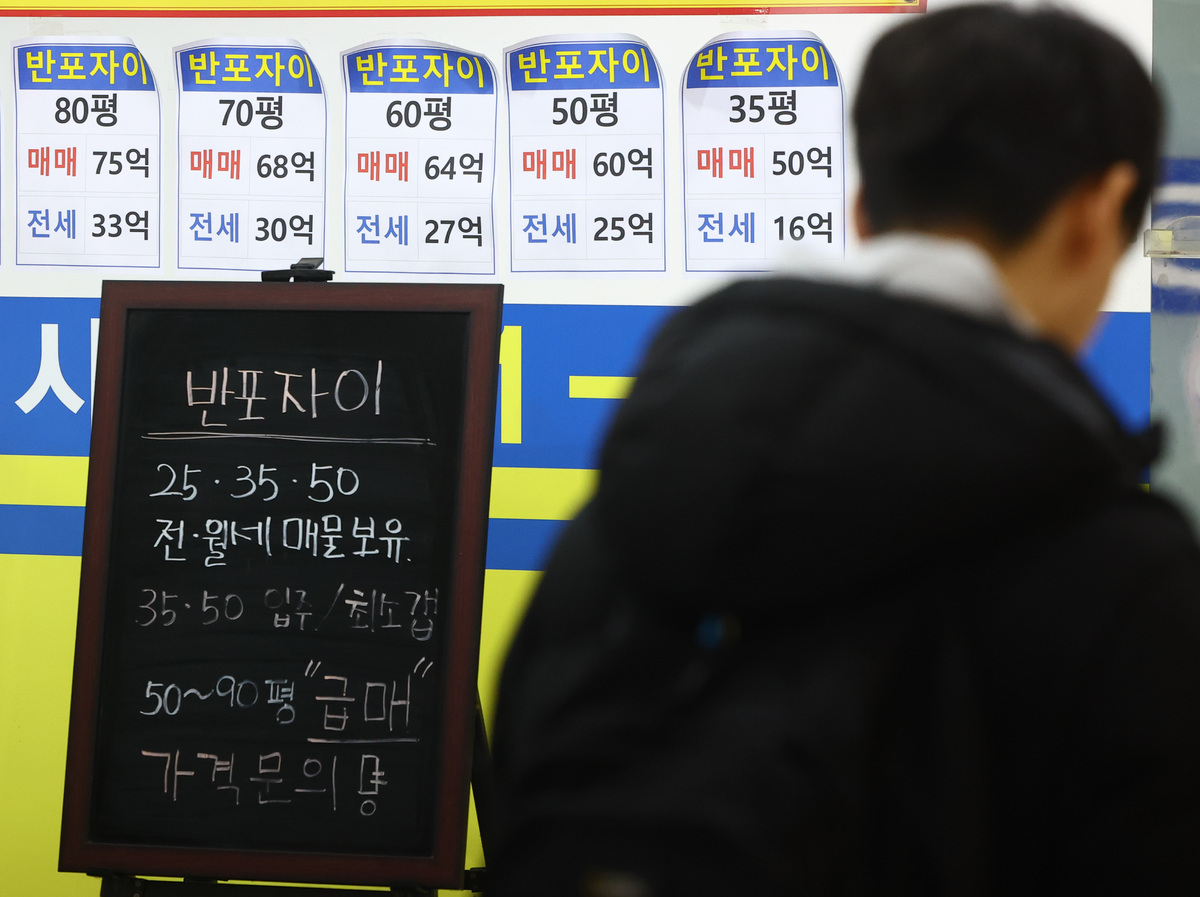 반포자이
80평
매매 75억
전세 33억
반포자이
70평
매매 68억
전세 30억
반포자이
60평
매매 64억
전세 27억
반포자이
50평
매매 60억
전세 25억
반포자이
35평
매매 50억
전세 16억
반포자이
25·35·50
전·월세 매물보유.
35·50 입주/최소갭
50~90평 "급매"
가격문의